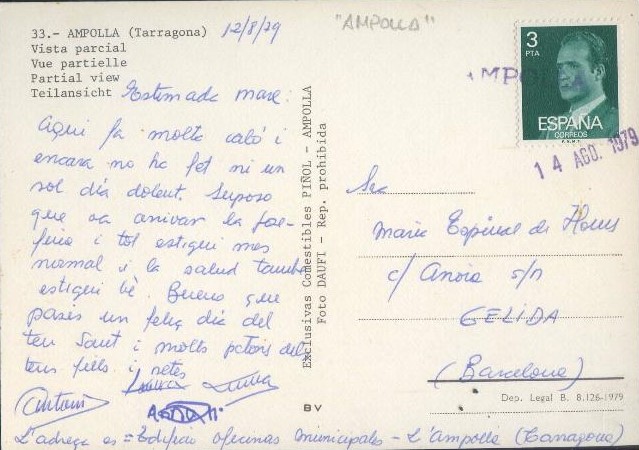 33.- AMPOLLA (Tarragona)
12/8/79
Vista parcial
Vue partielle
Partial view
Teilansicht
Estimada mare:
Aquí fa molta caló i
encara no ha fet ni un
sol dia dolent. Suposo
que va arrivar la
i tot estigui mes
normal i la salud també
estigui bé. Bueno que
passis un feliç dia del
teu Sant i molts petons dels
teus fills i netes
Antoni
L'adreça es = Edificio oficinas municipales - L'Ampolla (Tarragona)
Exclusivas Comestibles PIÑOL - AMPOLLA
Foto DAUFI - Rep. prohibida
BV
"AMPOLLA"
3
PTA
ESPAÑA
CORREOS
F.N.M.T.
AMPO
14 AGO. 1979
Maria Espinal de
c/ Anoia s/n
GELIDA
(Barcelona)
Dep. Legal B. 8.126-1979